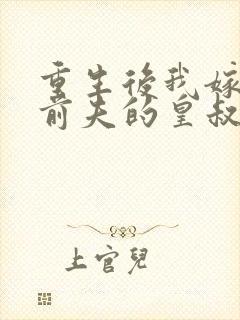 重生後我嫁
前夫的皇叔
上官兒